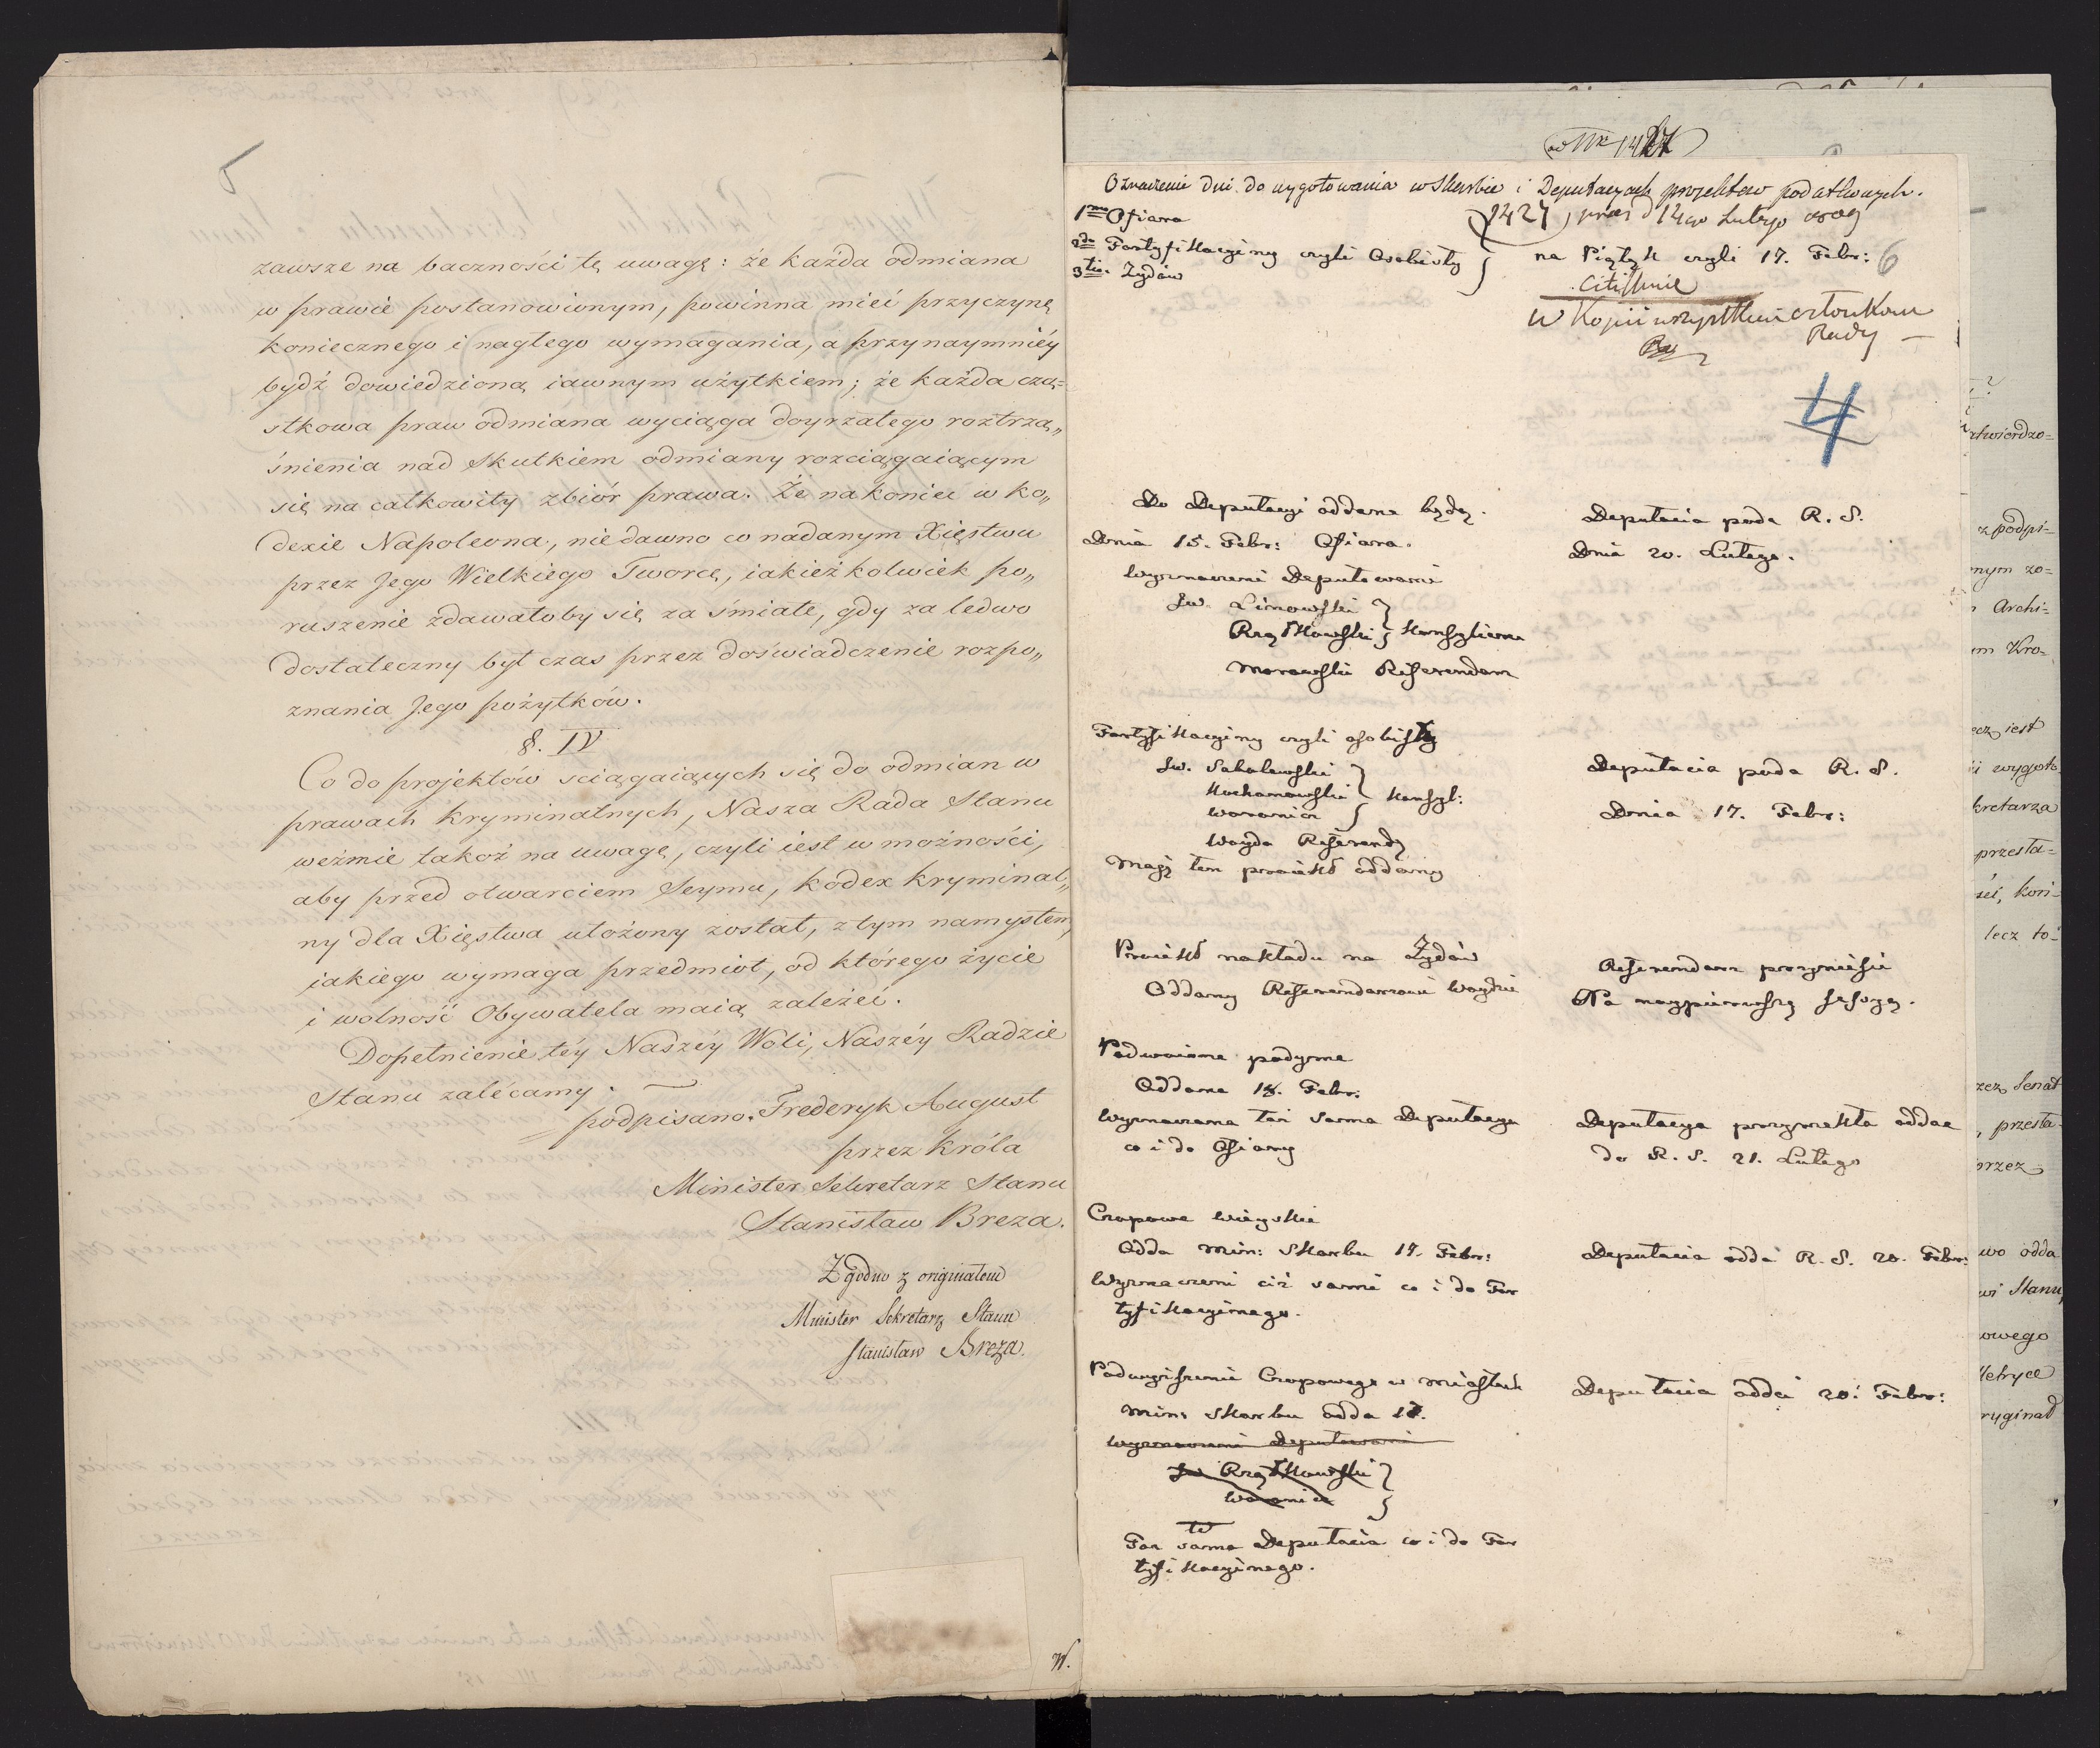 zawsze na baczności tę uwagę: że każda odmiana
w prawie postanowionym, powinna mieć przyczynę
koniecznego i nagłego wymagania, a przynaymniéy
bydź dowiedzioną iawnym użytkiem; że każda czą=
stkowa praw odmiana wyciąga doyrzałego roztrzą„
śnienia nad skutkiem odmiany rozciągaiącym
się na całkowity zbiór prawa. Że nakoniec w ko„
dexie Napoleona, niedawno co nadanym Xięstwu
przez Jego Wielkiego Tworcę, iakieżkolwiek po„
ruszenie zdawałoby się za śmiałe, gdy za ledwo
dostateczny był czas przez doświadczenie rozpo„
znania Jego pożytków.
§. IV
Co do projektów sciągaiących się do odmian w
prawach kryminalnych, Nasza Rada Stanu
weźmie takoż na uwagę, czyli iest w możności,
aby przed otwarciem Seymu, kodex kryminal„
ny dla Xięstwa ułożony został, z tym namysłem,
iakiego wymaga przedmiot, od którego życie
i wolność Obywatela maią zależeć.
Dopełnienie téy Naszéy Woli, Naszéy Radzie
Stanu zalécamy.
podpisano. Frederyk August
przez Króla
Minister Sekretarz Stanu
Stanisław Breza.
Zgodno z originałem
Minister Sekretarz Stanu
Stanisław Breza.
5
ad Nr 1427
Oznaczenie dni do wygotowania w Skarbie i Deputacyach projektow podatkowych.
1mo Ofiara
1427 praes d 14go Lutego 1809
2do Fortyfikacyiny czyli Osobisty
na Piątek czyli 17. Febr:
6
3tio. Żydów
Citissime
w Kopii wszystkim członkom
Rady
4
Do Deputacyi oddane będą.
Dnia 15. Febr: Ofiara.
Wyznaczeni Deputowani
Jw. Linowski
Rzątkowski Konsyliarze
Morawski Referendarz
Deputacia poda R. S.
Dnia 20. Lutego.
Fortyfikacyiny czyli osobisty
Jw. Sobolewski
Kochanowski Konsyl:
Woronicz
Woyda Referendz
Maią ten proiekt oddany
Deputacia poda R. S.
Dnia 17. Febr:
Proiekt nakładu na Żydów
Oddany Referendarzowi Woydzie
Referendarz przyniesie
Na naypierwszą sessyą.
Podwoione podymne
Oddane 18. Febr:
Wyznaczona taż sama Deputacya
co i do Ofiary
Deputacya przyrzekła oddać
do R. S. 21. Lutego
Czopowe Wieyskie
Odda Min: Skarbu 17. Febr:
Wyznaczeni ciż sami co i do For
tyfikacyinego.
Deputacia odda R. S. 20. Febr:
Podwyższenie Czopowego w Miastach
Min: Skarbu odda 17.
Wyznaczeni Deputowani
Jw Rzątkowski
Woronicz
Taż sama Deputacia co i do For
tyfikacyinego.
Deputacia odda 20. Febr:
twierdzo=
z podpi-
nym zo=
Archi=
m Kro=
ecz iest
i wygoto
kretarza
przesta=
lecz to=
zez Senat
przesta
przez
wo odda
wi Stanu,
owego
Metryce
ryginał